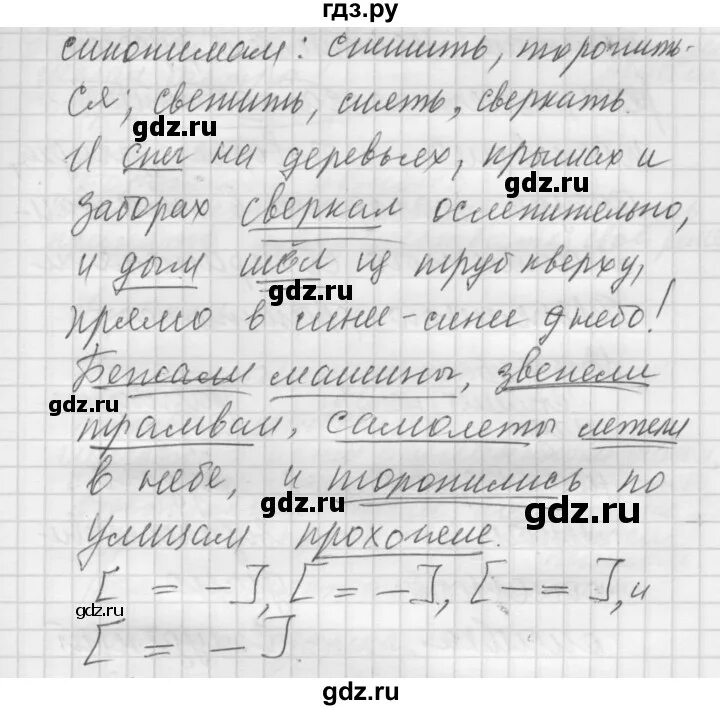 гдз.ру
синонимам: спешить, торопить-
ся; светить, сиять, сверкать.
gdz.ru
И снег на деревьях, крышах и
gdz.ru
заборах сверкал ослепительно,
и дым шёл из труб кверху,
gdz.ru
прямо в сине-синее небо!
gdz.ru
Бежали машины, звенели
gdz.ru
трамваи, самолеты летели
в небе, и торопились по
gdz.ru
gdz.ru
улицам прохожие.
[ = – ], [ = – ], [ – = ], и
gdz.ru
[ = – ]
gdz.ru